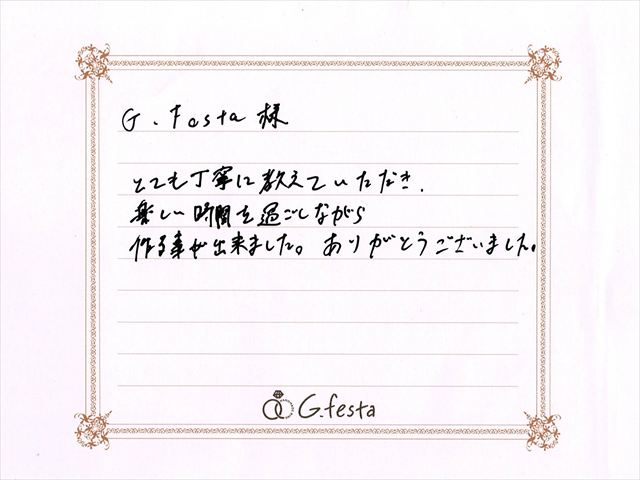 G.festa 様
とても丁寧に教えていただき、
楽しい時間を過ごしながら
作る事が出来ました。ありがとうございました。
G.festa